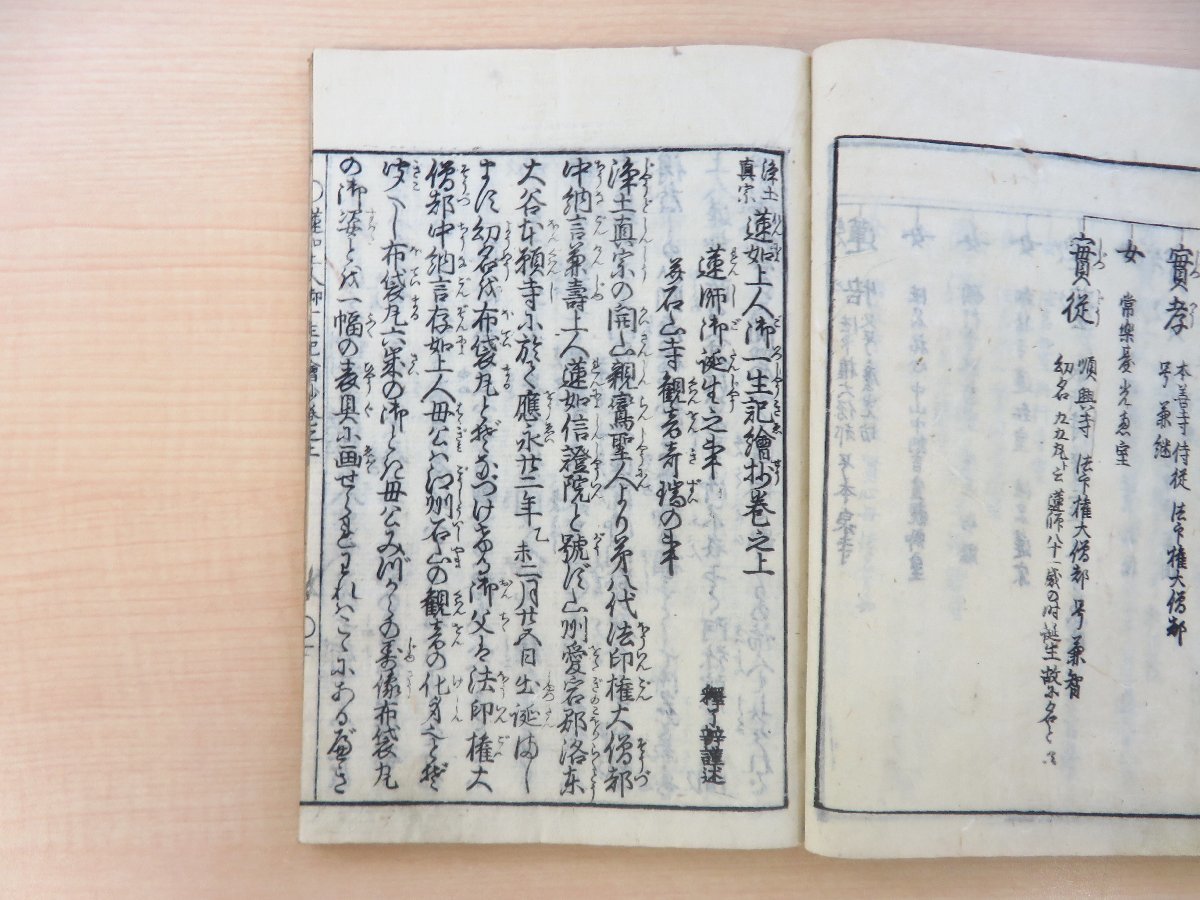 實孝 本善寺侍従 法印権大僧都
号兼継
女 常樂臺光恵室
實従 順興寺 法印権大僧都 号兼智
幼名九々丸ト云蓮師八十一歳の時誕生故に名とス
浄土真宗 蓮如上人御一生記繪抄巻之上
蓮師御誕生之事
并石山寺觀音奇瑞の事 釋了辨謹述
浄土真宗の開山親鸞聖人より第八代法印権大僧都
中納言兼壽上人蓮如信證院と號す山州愛宕郡洛東
大谷本願寺に於て應永廿二年乙未二月廿五日出誕まし
ます幼名は布袋丸と
つけ
御父は法印権大
僧都中納言存如上人母公は江州石山の觀音の化身
布袋丸六歳の御とき母公みづからの壽像布袋丸
の御姿とを一幅の表具に画せられわれはこゝにあるべき